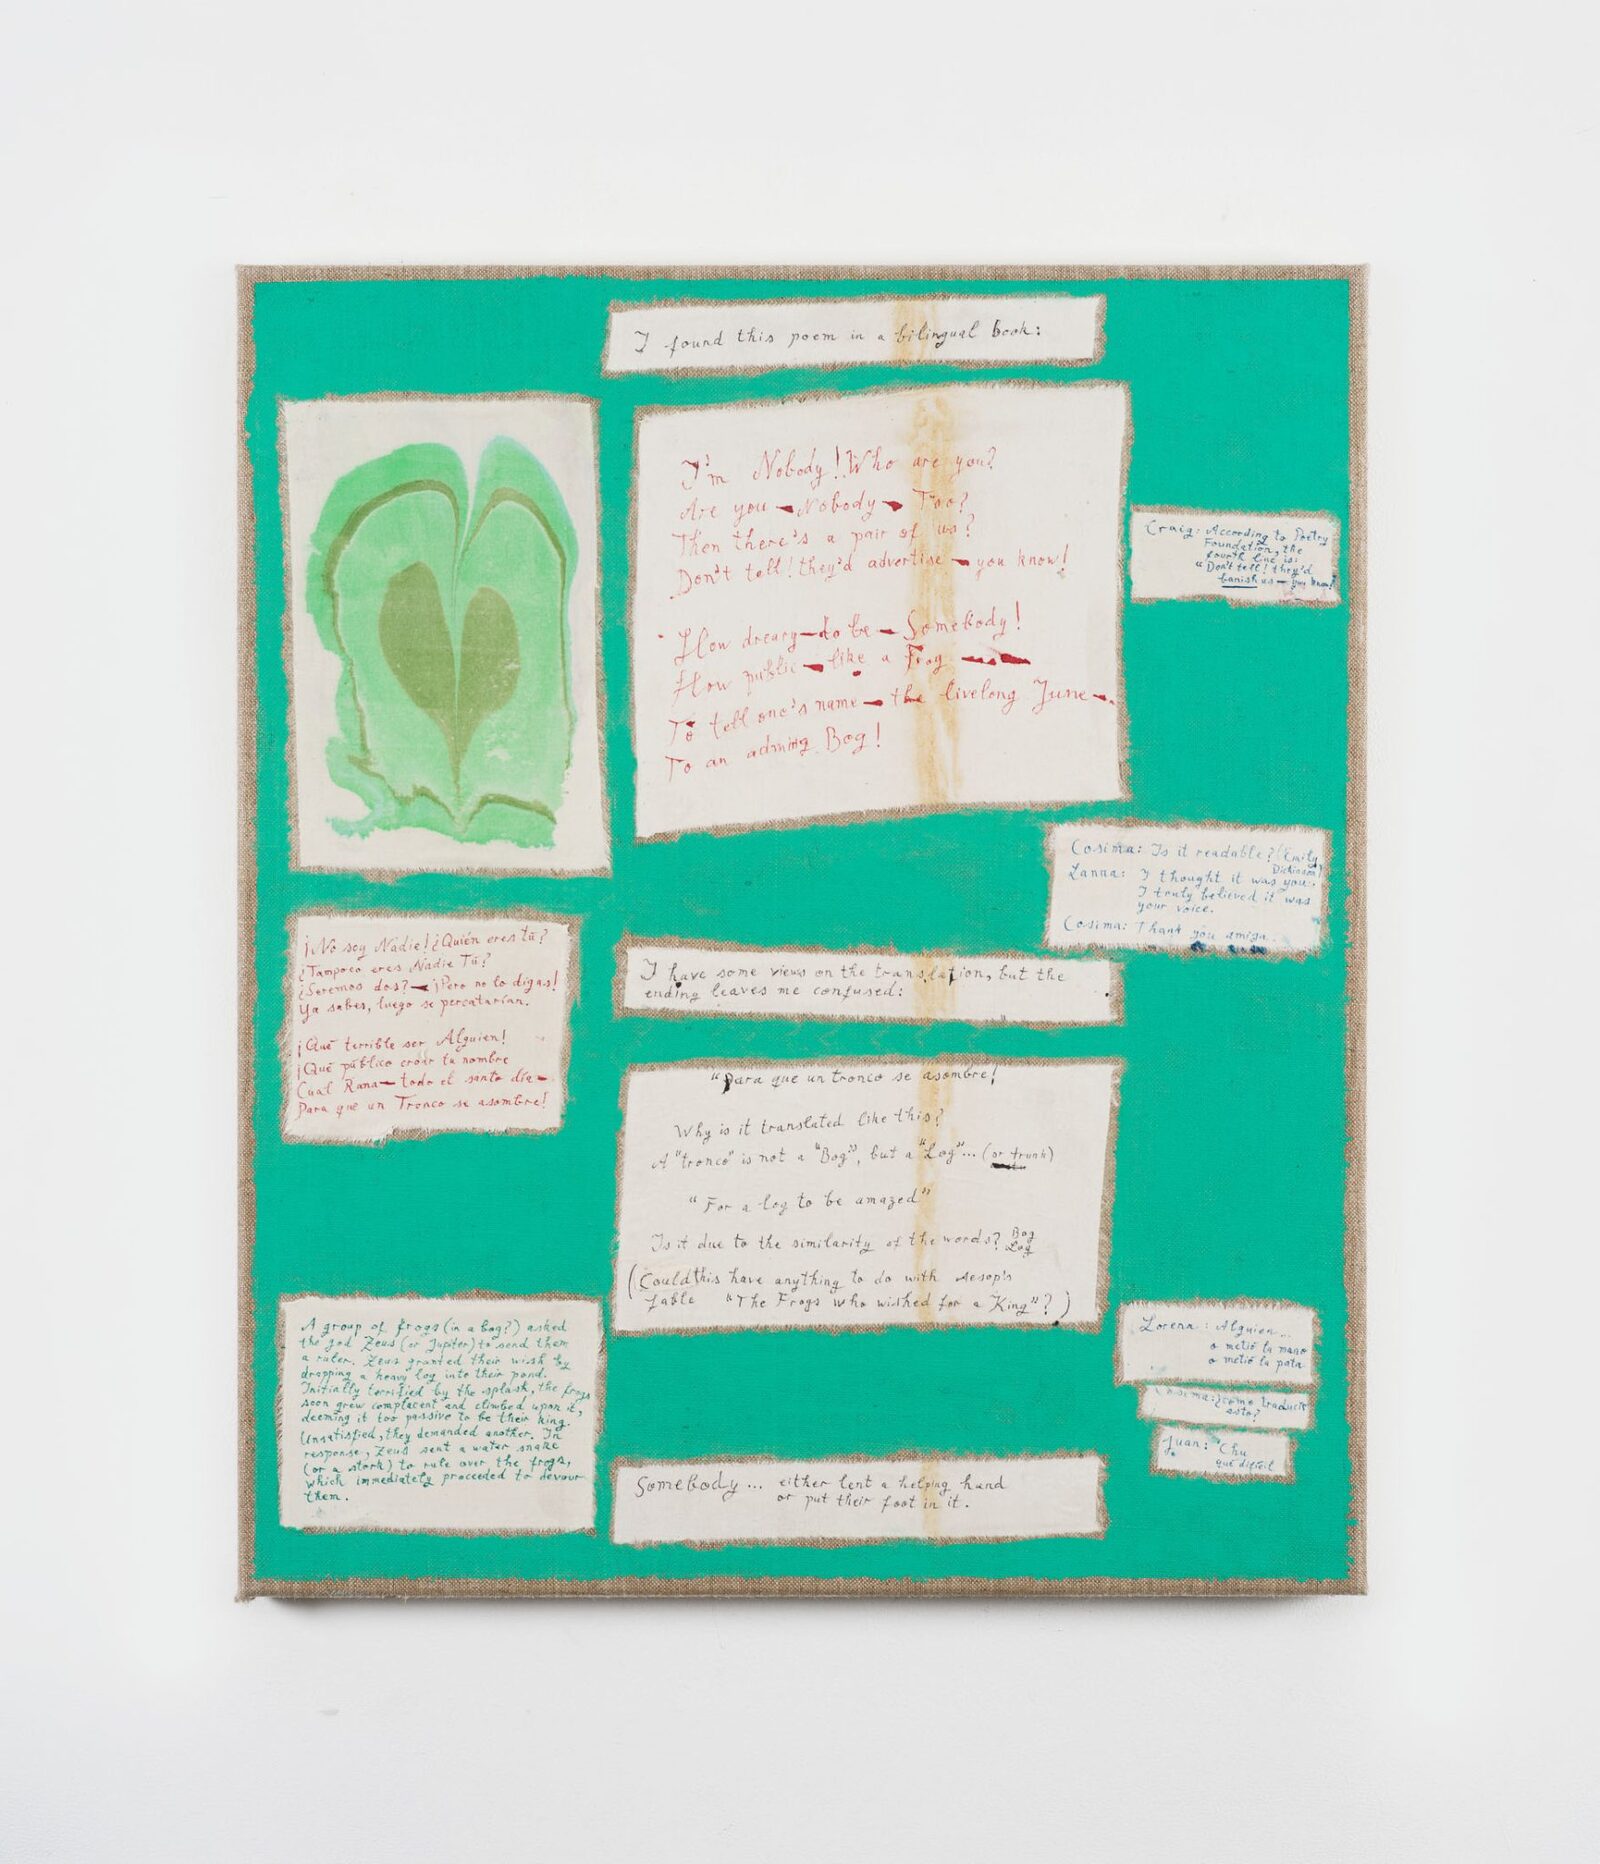 I found this poem in a bilingual book:
I'm Nobody! Who are you?
Are you – Nobody – Too?
Then there's a pair of us?
Don't tell! they'd advertise – you know!
How dreary – to be – Somebody!
How public – like a Frog –
To tell one's name – the livelong June –
To an admiring Bog!
Craig: According to Poetry
Foundation, the
fourth line is:
"Don't tell! they'd
banish us – you know!
Cosima: Is it readable? (Emily
Dickinson)
Lanna: I thought it was you..
I truly believed it was
your voice.
Cosima: Thank you amiga..
¡No soy Nadie! ¿Quién eres tú?
¿Tampoco eres Nadie Tú?
¿Seremos dos? – ¡Pero no lo digas!
Ya sabes, luego se percatarían.
¡Qué terrible ser Alguien!
¡Qué público croar tu nombre
Cual Rana – todo el santo día –
Para que un Tronco se asombre!
I have some views on the translation, but the
ending leaves me confused:
"Para que un tronco se asombre!
Why is it translated like this?
A "tronco" is not a "Bog", but a "Log"... (or trunk)
"For a log to be amazed"
Is it due to the similarity of the words? Bog
Log
(Could this have anything to do with Aesop's
fable "The Frogs who wished for a King"?)
A group of frogs (in a bog?) asked
the god Zeus (or Jupiter) to send them
a ruler. Zeus granted their wish by
dropping a heavy log into their pond.
Initially terrified by the splash, the frogs
soon grew complacent and climbed upon it,
deeming it too passive to be their king.
Unsatisfied, they demanded another. In
response, Zeus sent a water snake
(or a stork) to rule over the frogs,
which immediately proceeded to devour
them.
Lorena: Alguien...
o metió la mano
o metió la pata
Cosima: ¿cómo traducir
esto?
Juan: Chu
qué difícil
Somebody... either lent a helping hand
or put their foot in it.